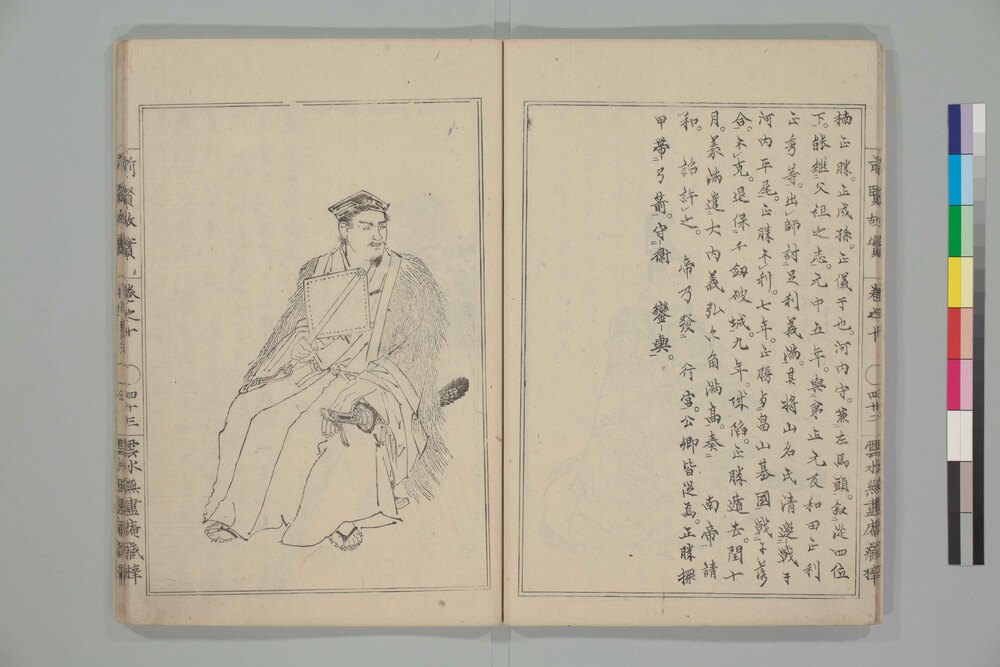 楠正勝。正成孫。正儀子也。河内守。兼左馬頭。叙從四位
下。能継父祖之志。元中五年。與弟正元及和田正利
正秀等。出師討足利義満。其将山名氏清邀戦于
河内平尾。正勝不利。七年。正勝與畠山基國戦于
合。不克。退保千劔破城。九年。城陥。正勝遁去。閏十
月。義満遣大内義弘六角満高。奏 南帝請
和。 詔許之。 帝乃發 行宮。公卿皆從焉。正勝擐
甲帯弓箭。守衛 鑾輿。
前賢故實 巻之十 四十二 雲水無盡庵蔵梓
前賢故實 巻之十 四十三 雲水無盡庵蔵梓